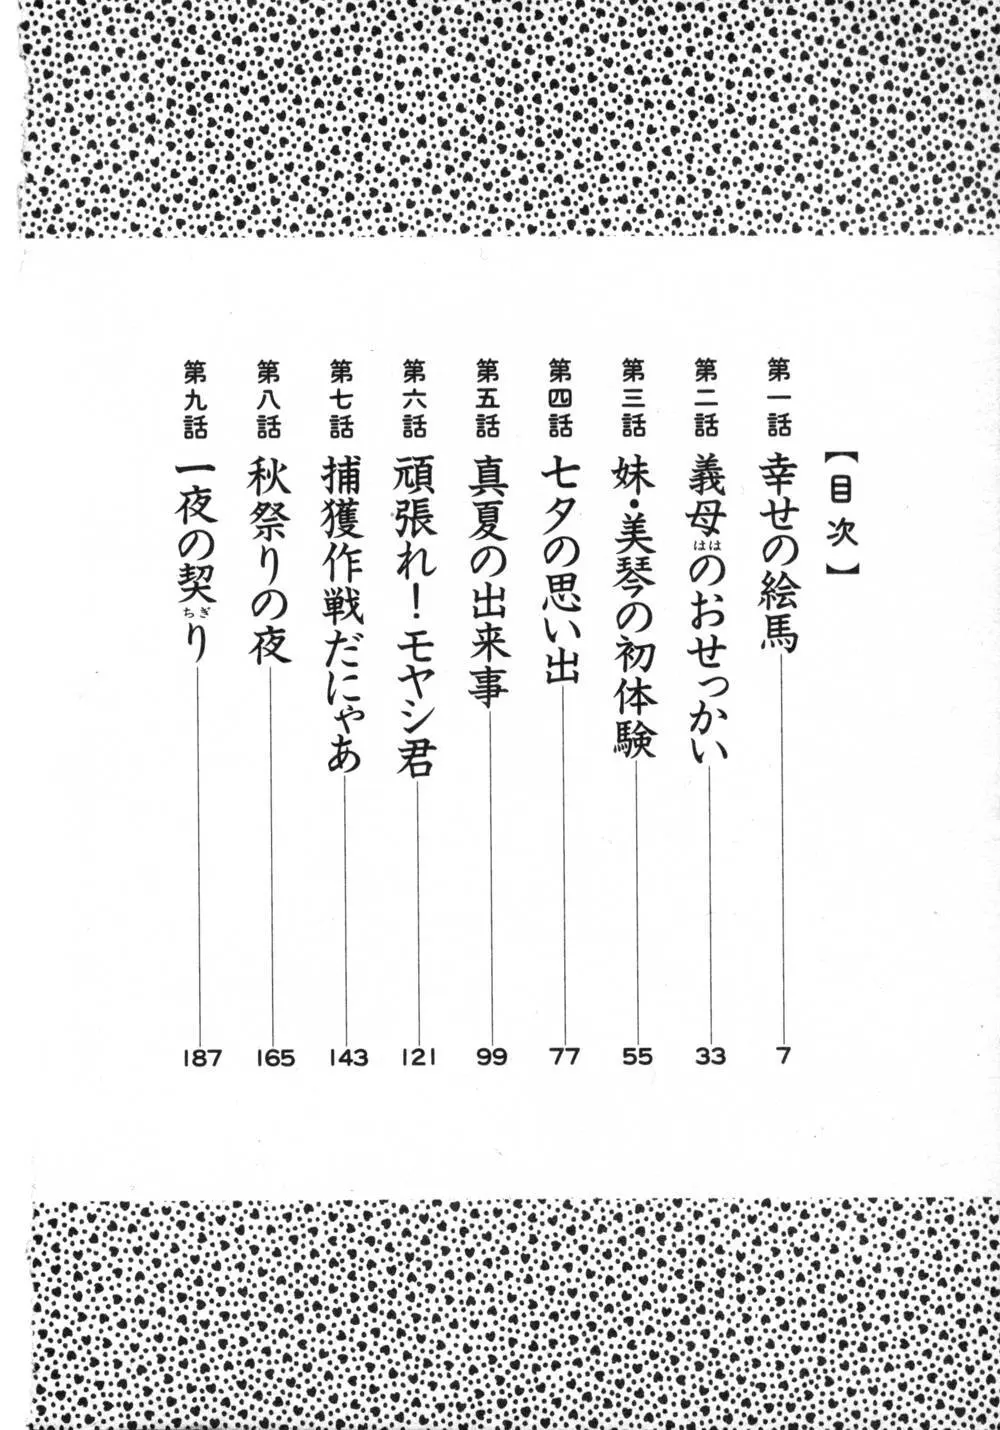 【目次】
第一話 幸せの絵馬 7
第二話 義母のおせっかい 33
はは
第三話 妹・美琴の初体験 55
第四話 七夕の思い出 77
第五話 真夏の出来事 99
第六話 頑張れ！モヤシ君 121
第七話 捕獲作戦だにゃあ 143
第八話 秋祭りの夜 165
第九話 一夜の契り 187
ちぎ